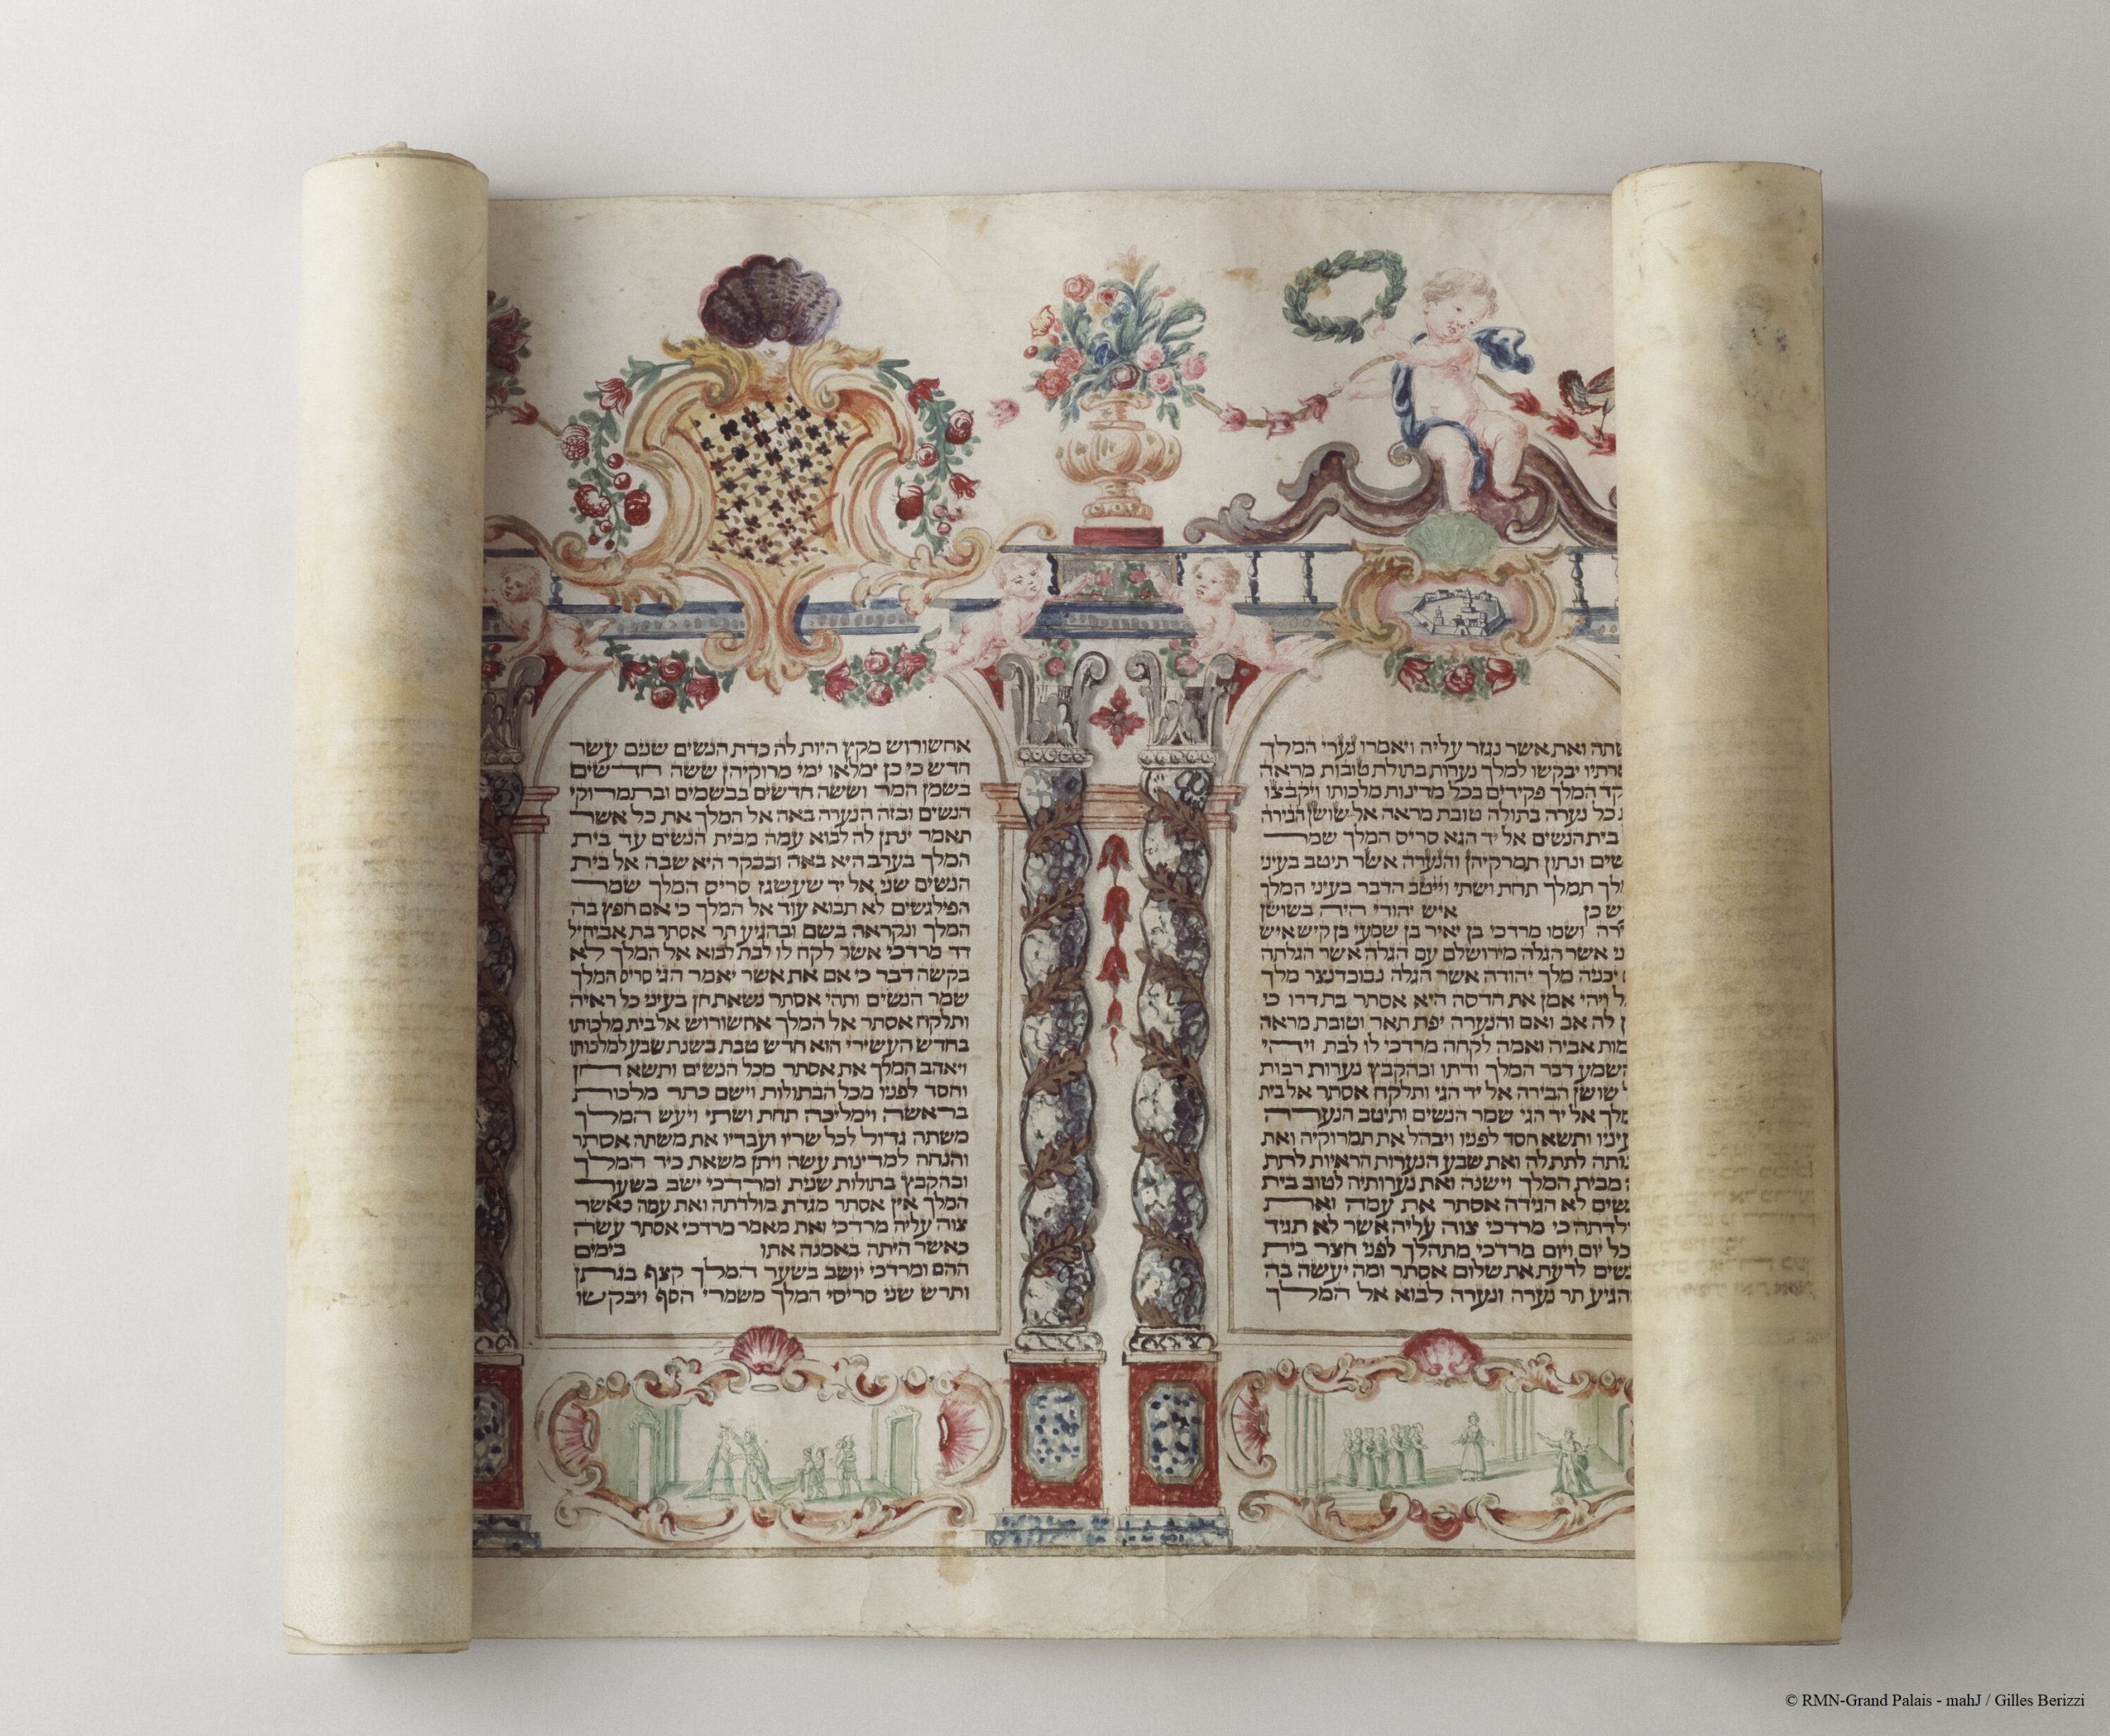 שתה ואת אשר נגזר עליה ויאמרו נערי המלך
שרתיו יבקשו למלך נערות בתולת טובות מראה
קד המלך פקידים בכל מדינות מלכותו ויקבצו
כל נערה בתולה טובת מראה אל שושן הבירה
בית הנשים אל יד הגא סריס המלך שמר
שים ונתון תמרקיהן והנערה אשר תיטב בעיני
לך תמלך תחת ושתי וייטב הדבר בעיני המלך
ש כן איש יהודי היה בשושן
ירה ושמו מרדכי בן יאיר בן שמעי בן קיש איש
ני אשר הגלה מירושלם עם הגלה אשר הגלתה
יכניה מלך יהודה אשר הגלה נבוכדנצר מלך
ל ויהי אמן את הדסה היא אסתר בת דדו כי
ן לה אב ואם והנערה יפת תאר וטובת מראה
מות אביה ואמה לקחה מרדכי לו לבת ויהי
השמע דבר המלך ודתו ובהקבץ נערות רבות
שושן הבירה אל יד הגי ותלקח אסתר אל בית
מלך אל יד הגי שמר הנשים ותיטב הנערה
עיניו ותשא חסד לפניו ויבהל את תמרוקיה ואת
נותה לתת לה ואת שבע הנערות הראיות לתת
מבית המלך וישנה ואת נערותיה לטוב בית
שים לא הגידה אסתר את עמה ואת
לדתה כי מרדכי צוה עליה אשר לא תגיד
כל יום ויום מרדכי מתהלך לפני חצר בית
שים לדעת את שלום אסתר ומה יעשה בה
הגיע תר נערה ונערה לבוא אל המלך
אחשורוש מקץ היות לה כדת הנשים שנים עשר
חדש כי כן ימלאו ימי מרוקיהן ששה חדשים
בשמן המר וששה חדשים בבשמים ובתמרוקי
הנשים ובזה הנערה באה אל המלך את כל אשר
תאמר ינתן לה לבוא עמה מבית הנשים עד בית
המלך בערב היא באה ובבקר היא שבה אל בית
הנשים שני אל יד שעשגז סריס המלך שמר
הפילגשים לא תבוא עוד אל המלך כי אם חפץ בה
המלך ונקראה בשם ובהגיע תר אסתר בת אביחיל
דד מרדכי אשר לקח לו לבת לבוא אל המלך לא
בקשה דבר כי אם את אשר יאמר הגי סריס המלך
שמר הנשים ותהי אסתר נשאת חן בעיני כל ראיה
ותלקח אסתר אל המלך אחשורוש אל בית מלכותו
בחדש העשירי הוא חדש טבת בשנת שבע למלכותו
ויאהב המלך את אסתר מכל הנשים ותשא חן
וחסד לפניו מכל הבתולות וישם כתר מלכות
בראשה וימליכה תחת ושתי ויעש המלך
משתה גדול לכל שריו ועבדיו את משתה אסתר
והנחה למדינות עשה ויתן משאת כיד המלך
ובהקבץ בתולות שנית ומרדכי ישב בשער
המלך אין אסתר מגדת מולדתה ואת עמה כאשר
צוה עליה מרדכי ואת מאמר מרדכי אסתר עשה
כאשר היתה באמנה אתו בימים
ההם ומרדכי יושב בשער המלך קצף בגתן
ותרש שני סריסי המלך משמרי הסף ויבקשו
© RMN-Grand Palais - mahJ / Gilles Berizzi